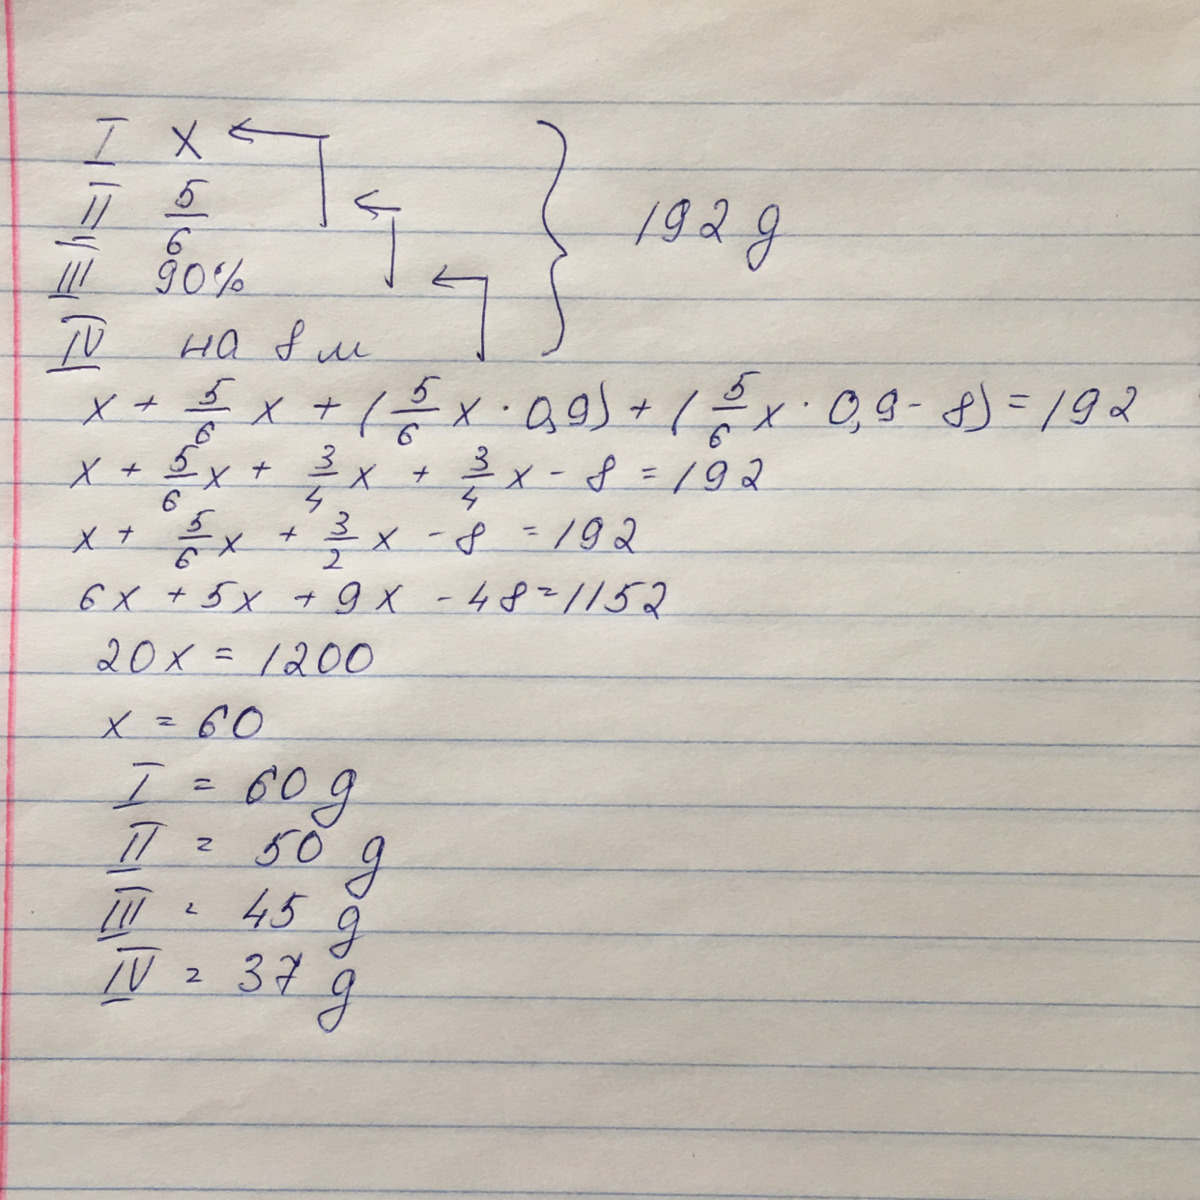 I x
II 5/6
III 90%
IV на 8 м
192 g
x + 5/6 x + (5/6 x · 0,9) + (5/6 x · 0,9 - 8) = 192
x + 5/6 x + 3/4 x + 3/4 x - 8 = 192
x + 5/6 x + 3/2 x - 8 = 192
6x + 5x + 9x - 48 = 1152
20x = 1200
x = 60
I = 60 g
II = 50 g
III = 45 g
IV = 37 g